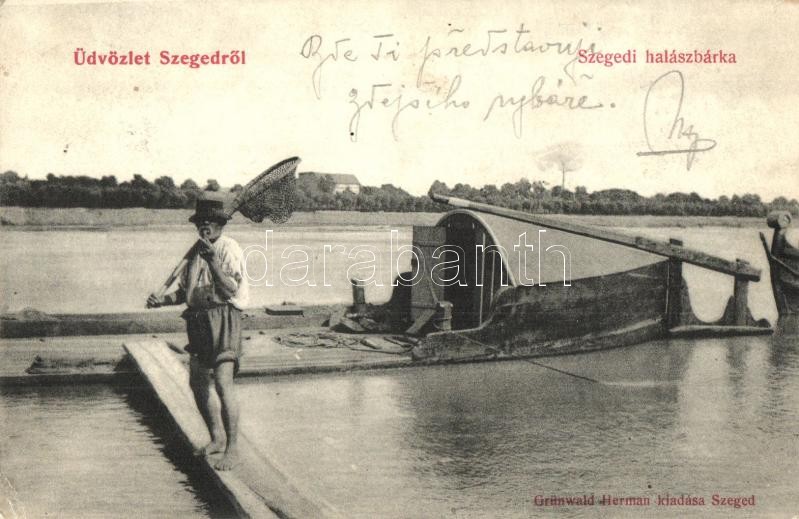 Üdvözlet Szegedről
Szegedi halászbárka
Zde Ti představuji
zdejšího rybáře.
darabanth
Grünwald Herman kiadása Szeged